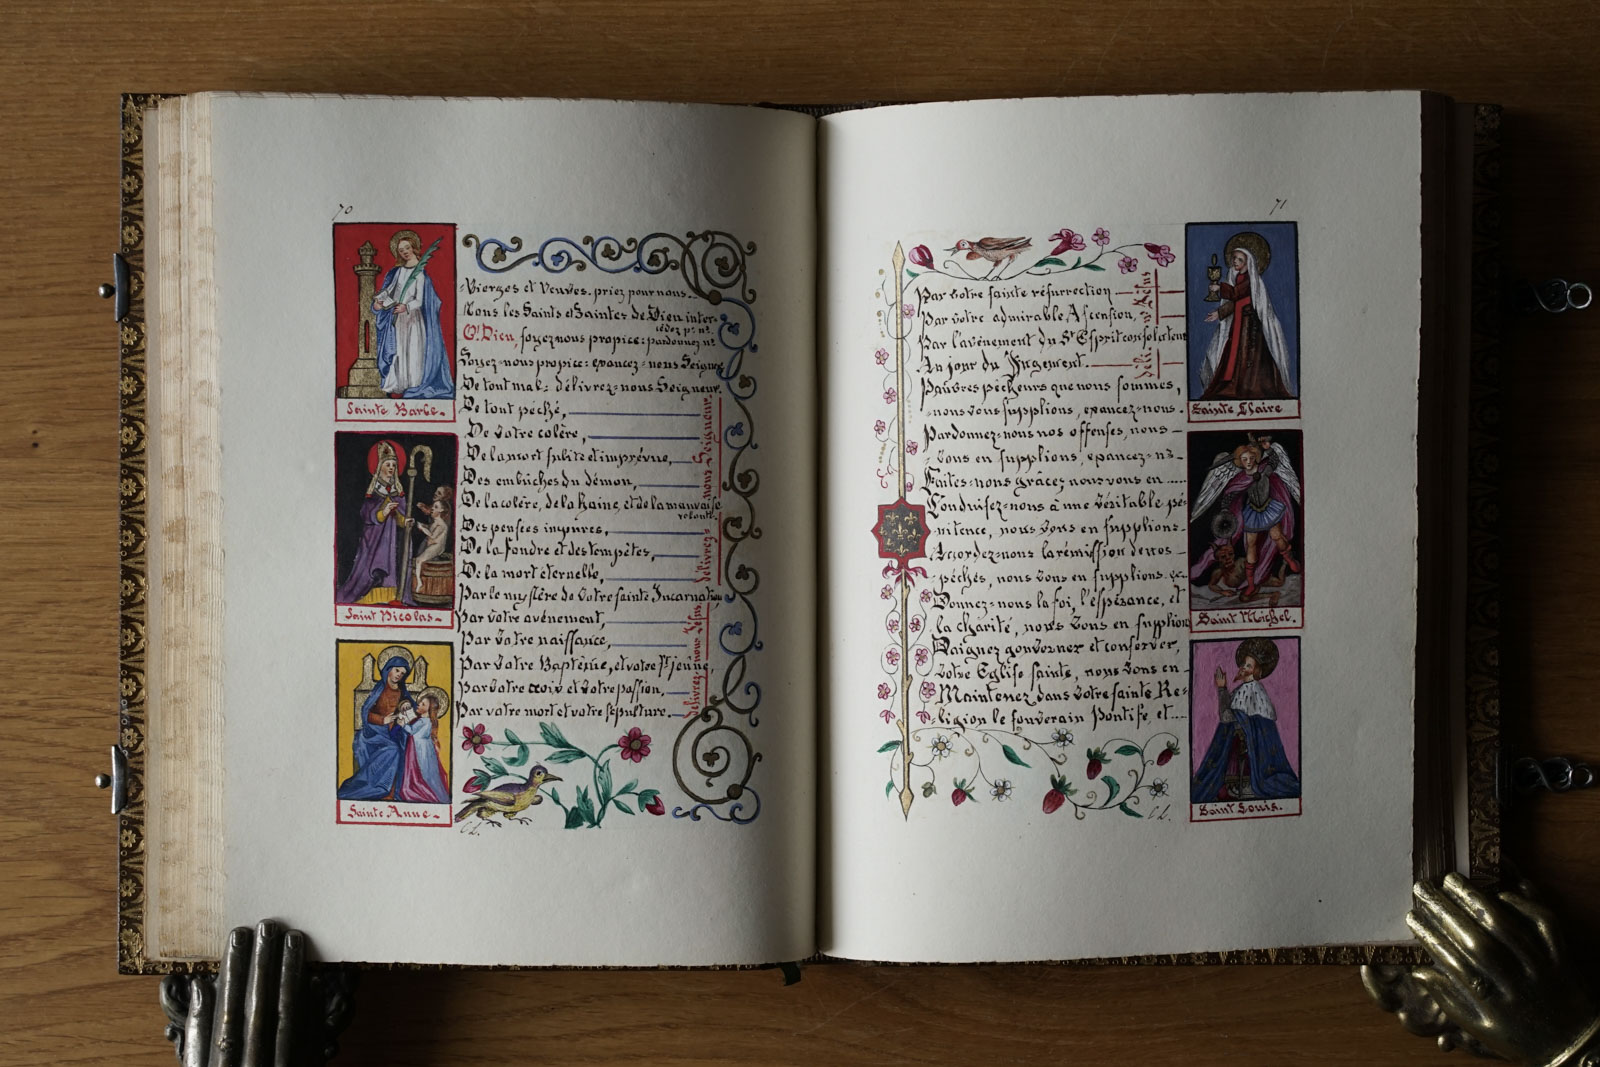 70
Sainte Barbe.
Saint Nicolas.
Sainte Anne.
Vierges et Veuves. priez pour nous.
Tous les Saints et Saintes de Dieu inter-
cédez pr. ns.
O! Dieu, soyez nous propice: pardonnez ns
Soyez-nous propice: exaucez-nous Seigneur
De tout mal: délivrez-nous Seigneur.
De tout péché,
De votre colère,
De la mort subite et imprévue,
Des embûches du démon,
De la colère, de la haine, et de la mauvaise
volonté.
Des pensées impures,
De la foudre et des tempêtes,
De la mort éternelle,
délivrez-nous Seigneur.
Par le mystère de votre sainte Incarnation
Par votre avénement,
Par votre naissance,
Par votre Baptême, et votre st jeûne,
Par votre croix et votre passion,
Par votre mort et votre sépulture.
délivrez-nous Jésus.
CL.
71
Par votre sainte résurrection
Par votre admirable Ascension,
Par l'avénement du St Esprit consolateur
Au jour du Jugement.
Pauvres pécheurs que nous sommes,
nous vous supplions, exaucez-nous.
Pardonnez-nous nos offenses, nous
vous en supplions, exaucez-ns-
Faites-nous grâce, nous vous en .....
Conduisez-nous à une véritable pé-
nitence, nous vous en supplions.
Accordez-nous la rémission de nos
péchés, nous vous en supplions. ex-
Donnez-nous la foi, l'espérance, et
la charité, nous vous en supplions
Daignez gouverner et conserver,
votre Eglise sainte, nous vous en
Maintenez dans votre sainte Re-
ligion le souverain Pontife, et ....
CL.
Sainte Claire.
Saint Michel.
Saint Louis.